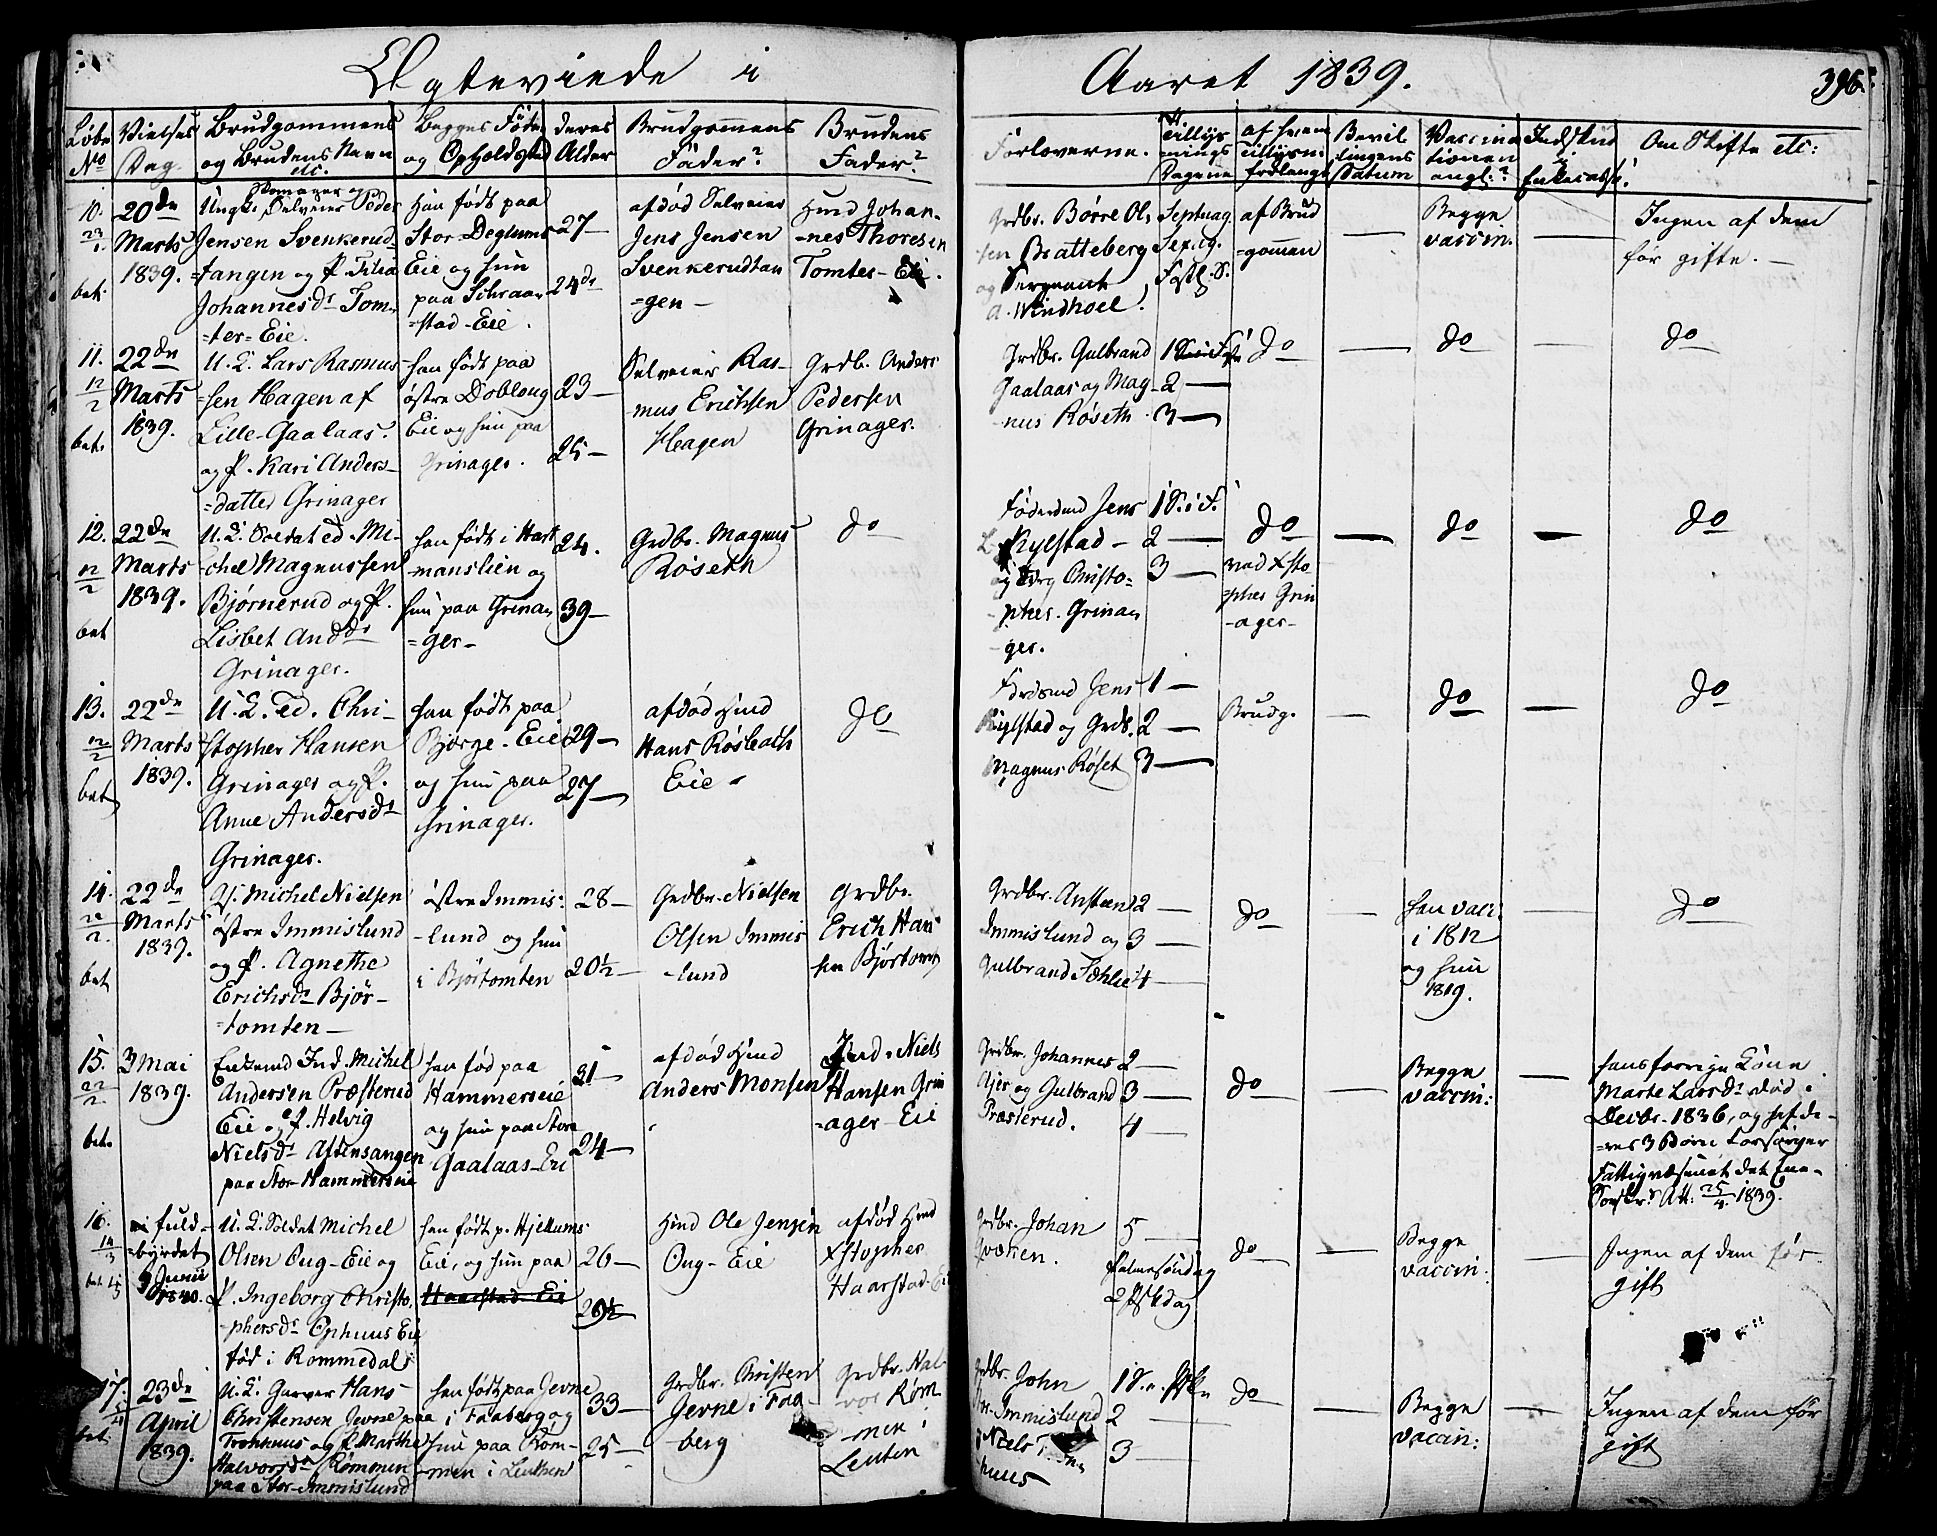 Ægteviede i Aaret 1839.
396.
Løbe No
Vielses Dag
Brudgommens og Brudens Navn etc.
Begges Føde og Opholdsted
deres Alder
Brudgommens Fader?
Brudens Fader?
Forloverne.
Tillysnings Dagene
af hvem Tillysn. forlangt
Bevillingens Datum
Vaccinationen angl.?
Indskud i Enkecasse.
Om Skifte etc:
10.
23/1
bet.
20de
Marts
1839.
Ungk. Selveier Peder
Jensen Svenkerud-
tangen og P.
Johannesdr Tom-
=ter=Eie.
han født paa
Stor-Deglums
Eie og hun
paa
=stad-Eie.
27-
24de
afdød Selveier
Jens Jensen
Svenkerudtan
=gen-
Huusmd Johan-
=nes Thoresen
Tomter-Eie.
Grdbr. Børre Ol,
sen Bratteberg
og Sergeant
A. Windhoel.
Septuag
Sexag.
Fastl. S.
af Brud
=gomen
-
Begge
vaccin.
-
Ingen af dem
før gifte.-
11.
12/2
bet.
22de
Marts
1839.
U. K. Lars Rasmus-
sen Hagen af
Lille-Gaalaas.
og P. Kari Anders-
=datter Grinager
han født paa
østre Dobloug
Eie og hun paa
Grinager.
23-
25-
Selveier Ras-
mus Erichsen
Hagen
Grdb. Anders
Pedersen
Grinager.
Grdbr. Gulbrand
Gaalaas og Mag-
nus Røseth
1 S. i F.
2-
3-
do
-
do
-
do
12.
12/2
bet
22de
Marts
1839.
U. K. Soldat ed. Mi-
chel Magnussen
Bjørnerud og P.
Lisbet Anddr
Grinager.
han født i Hart
-manslien og
hun paa Grina
=ger-
24.
39-
Grdbr. Magnus
Røseth
do
Føderaad Jens
Kylstad-
og Christo=
-pher Grina
-ger.
1 S. i F.
2-
3-
do
ved Xsto
=pher Grin
-ager-
-
do
-
do
13.
12/2
bet
22de
Marts
1839.
U. K. Ed. Chri-
stopher Hansen
Grinager og P.
Anne Andersdr
Grinager.
han født paa
Bjørge-Eie
og hun paa
Grinager.
29-
27-
afdød Huusmd
Hans Røsbath
Eie-
do
Jens
Kylstad og Grdb.
Magnus Røset
1-
2-
3-
Brudg.
-
do
-
do
14.
22/2
bet
22de
Marts
1839.
Y. Michel Nielsen
østre Immislund
og P. Agnethe
Erichsdr Bjør-
=tomten-
østre Immis:
-lund og hun
i Bjørtomten
28-
20½-
Grdbr. Nielsen
Olsen Immis
-lund
Grdbr.
Erich Han
sen Bjørtomt
Grdbr. Ansten
Immislund og
Gulbrand Fæhlie
2-
3-
4-
do
-
han vacc.
i 1812
og hun
1819.
-
do
15.
22/2
bet.
3 Mai
1839.
Enkemd Ind. Michel
Andersen Præsterud
Eie og P. Helvig
Nielsdr Aftensangen
paa Stor-Hammerseie
han fød paa
Hammerseie
og hun paa Store
Gaalaas-Eie
31-
24-
afdød Huusmd
Anders Monsen
Ind. Niels
Hansen Grin
=ager-Eie
Grdbr. Johannes
Ajer og Gulbrand
Præsterud.
2-
3-
4-
do
-
Begge
vaccin:
-
hans forrige Kone
Marte Larsdr død i
Decbr. 1836, og
=res 3 Børn forsørger
Fattigvæsenet
Att: 25/4 1839.
16.
14/3
fuld-
=byrdet
Junii
1840.
U. K. Soldat Michel
Olsen Oug-Eie og
P. Ingeborg Christo,
-phersdr Ophuus Eie
fød i Rommedal
han født p. Hjellums
Eie, og hun paa
Haarstad-Eie
26-
20½
Huusmd Ole Jensen
Oug-Eie
afdød Huusmd
Xstopher
Haarstad-Eie
Grdbr. Johan
5-
Palmesøndag
2 Pskdag
do
-
Begge
vaccin.
-
Ingen af dem før
gift
17.
bet
23de
April
1839.
U. K. Garver Hans
Christensen Jevne paa
Tronhuus og P. Marthe
Halvorsdr Rømmen
paa Stor-Immislund
han født paa Jevne
i Faaberg og
hun paa Røm-
-men i Leuthen
33-
25-
Grdbr. Christen
Jevne i Faa-
berg
Grdbr. Hal-
vor Røm-
-men i
Leuten
Grdbr. John
Immislund
Niels
huus
1 S.
2-
3-
do
-
Begge
vaccin:
-
Ingen af dem før
gift